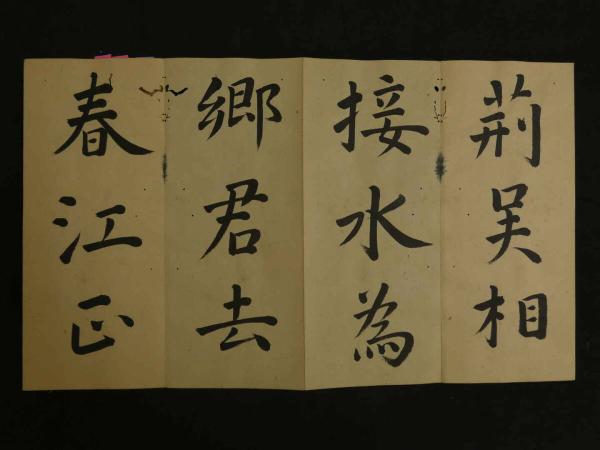 荊吳相
接水為
鄉君去
春江正